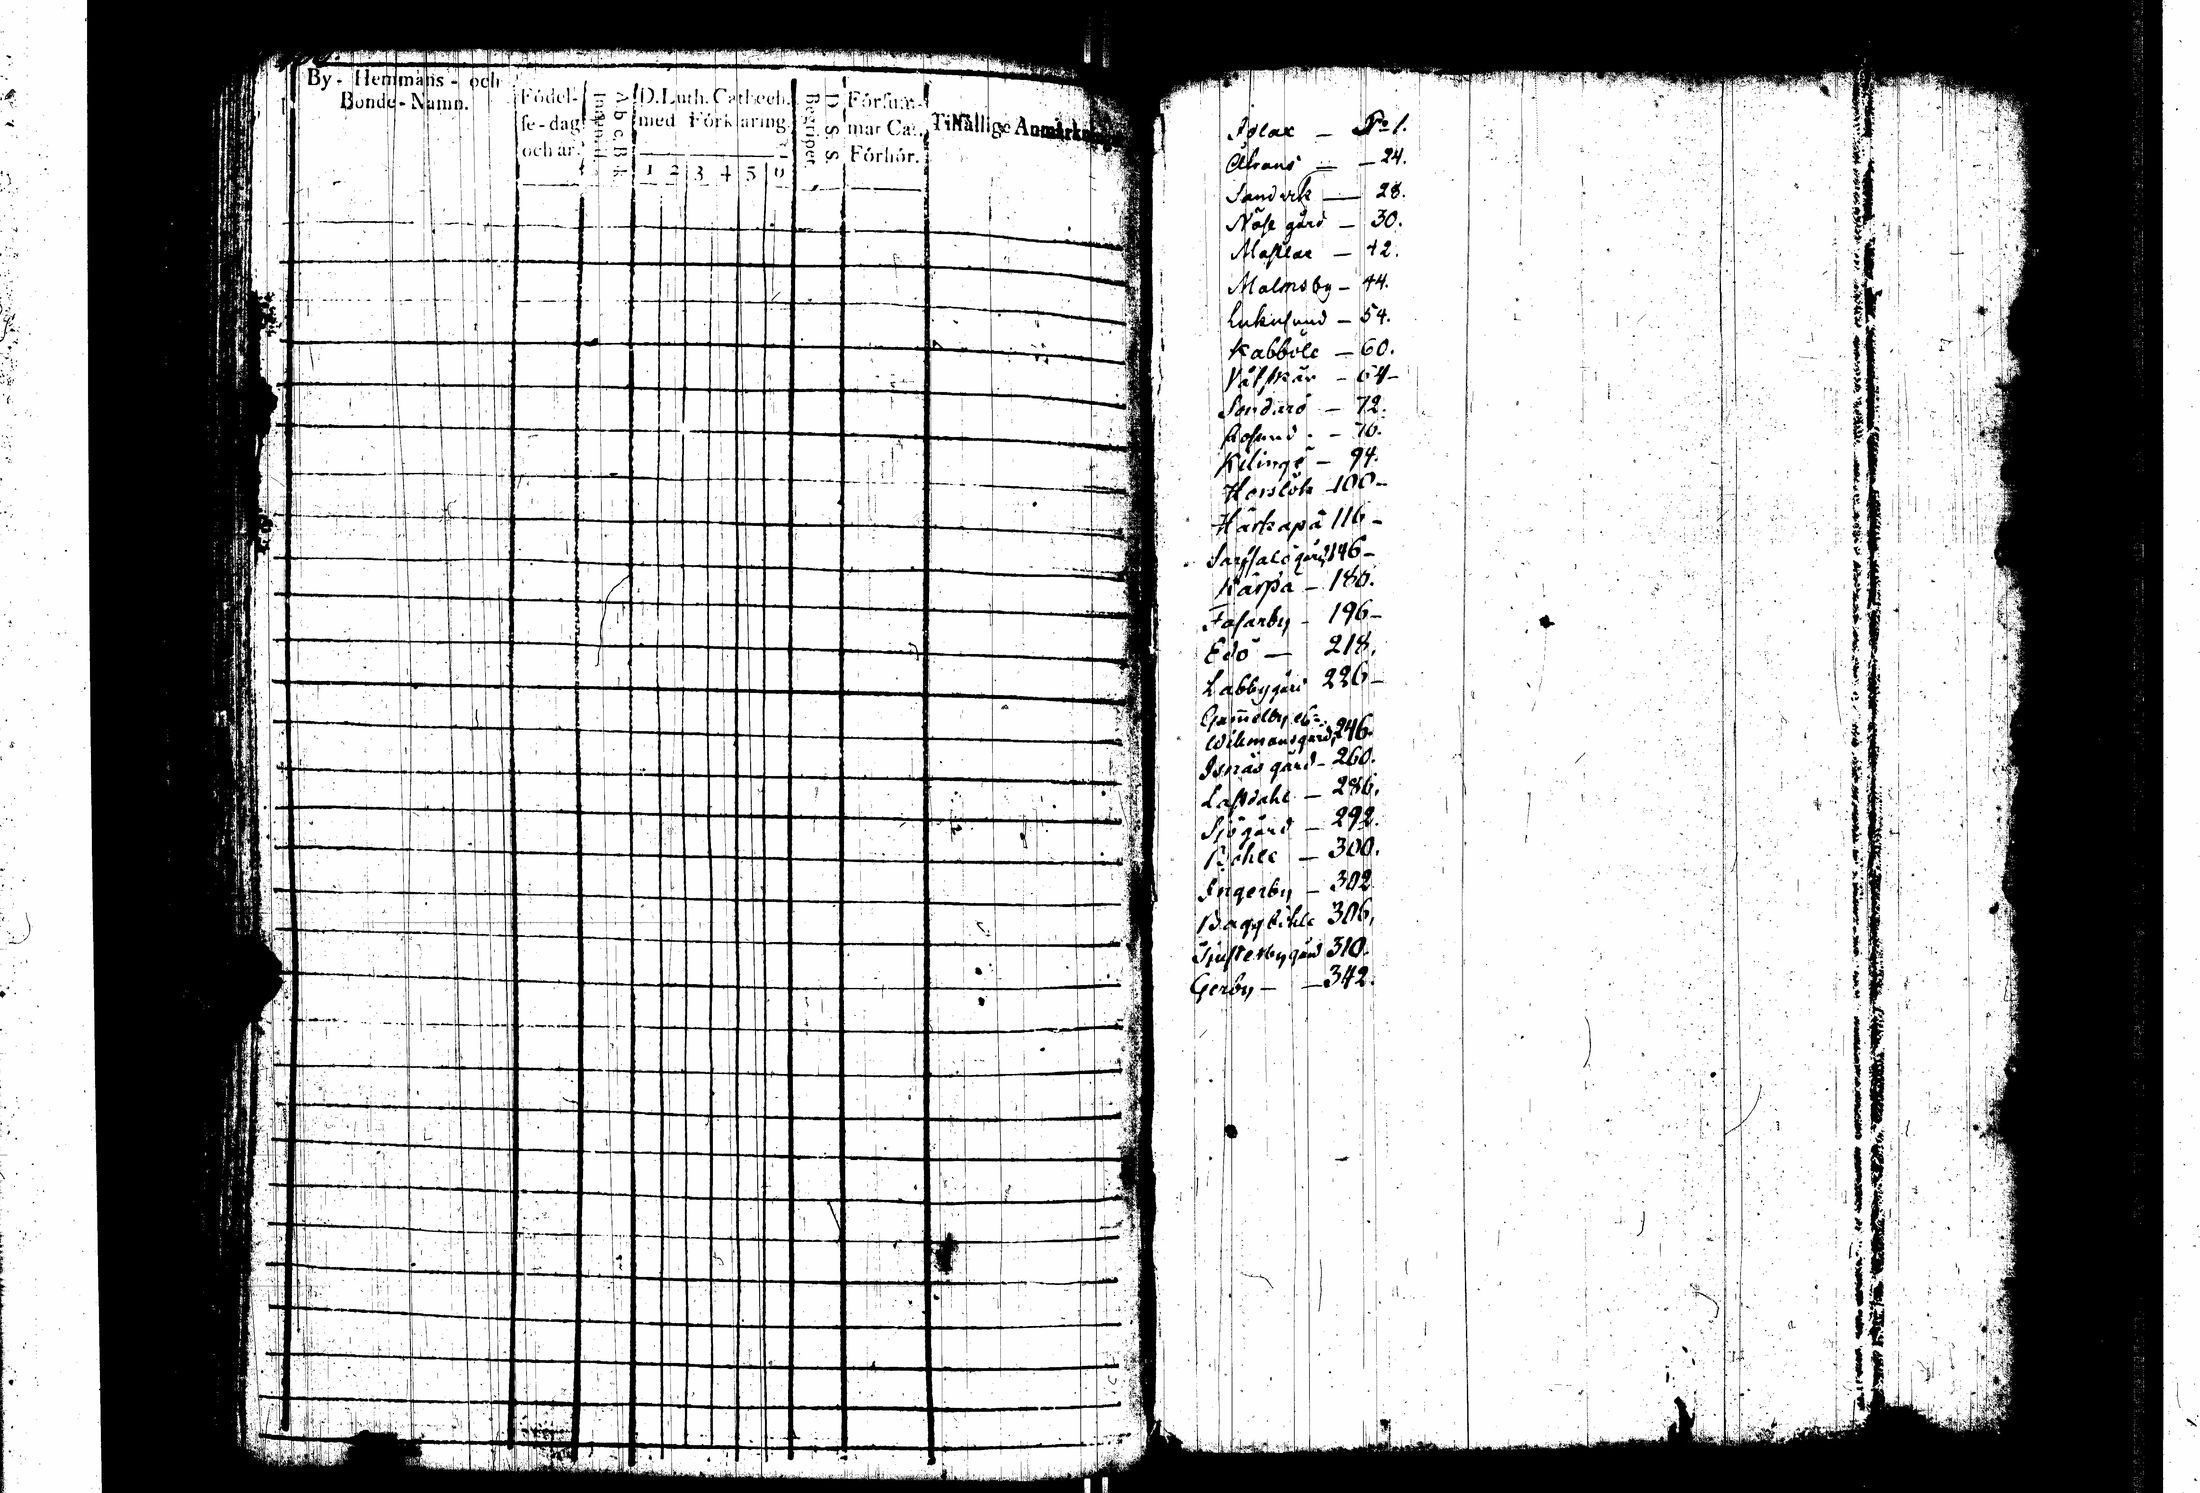 By - Hemmans - och
Bonde - Namn.
Födel-
se-dag
och år.
A b c B k
D. Luth. Cathech.
med Förklaring
1 2 3 4 5 6
Begriper
D. S. S.
Försum-
mar Cat.
Förhör.
Tilfällige Anmärkningar
Isl​ax — No 1.
— 24.
Sandvik — 28.
Näse gård — 30.
— 42.
Malmsby — 44.
— 54.
Kabböle — 60.
Våtskär — 64 —
Sondarö — 72.
Rosund — 76.
Kelingö — 94.
Horslök — 100 —
Härkäpä 116 —
Sarfsalö gård 146 —
Kärpä — 180.
Fasarby — 196 —
Edö — 218.
Labby gård 226 —
Gammelby et
Wikmansgård 246.
Isnäs gård — 260.
Lassdahl — 286.
Sjögård — 292.
Böhle — 300.
Ingerby — 302
Baggböhle 306,
Tjusterby gård 310.
Gerby — — 342.